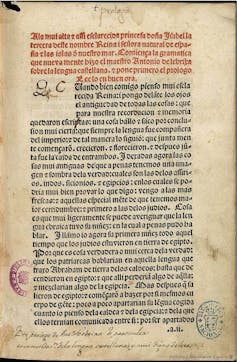 prologo
A la muy alta y assi esclarecida princesa doña Isabel la
tercera deste nombre Reina i señora natural de españa
y las islas d nuestro mar. Comiença la gramatica
que nueva mente hizo el maestro Antonio de lebrixa
sobre la lengua castellana. y pone primero el prologo.
Lee lo en buen ora.
Quando bien comigo pienso mui escla
recida Reina: i pongo delante los ojos
el antiguedad de todas las cosas: que
para nuestra recordacion y memoria
quedaron escriptas: una cosa hallo y saco por conclu
sion mui cierta: que siempre la lengua fue compañera
del imperio: y de tal manera lo siguio: que junta men
te començaron. crecieron. y florecieron. y despues jun
ta fue la caida de entrambos. I dexadas agora las co
sas mui antiguas de que a penas tenemos una imagen
y sombra dela verdad: cuales son las delos assiri
os. indos. sicionios. y egipcios: enlos cuales se po
dria mui bien provar lo que digo: vengo a las mas
frescas: y aquellas especial mente de que tenemos maior
certidumbre: y primero a las delos judios. Cosa
es que mui ligera mente se puede averiguar que la len
gua ebraica tuvo su niñez: en la cual a penas pudo ha
blar. I llamo io agora su primera niñez todo aquel
tiempo que los judios estuvieron en tierra de egipto.
Por que es cosa verdadera o mui cerca dela verdad:
que los patriarcas hablarian en aquella lengua que
traxo Abraham de tierra delos caldeos: hasta que de
cendieron en egipto: y que alli perderian algo de aquella:
y mezclarian algo dela egipcia. Mas despues que sa
lieron de egipto: y començaron a hazer por si mesmos cu
erpo de gente: poco a poco apartarian su lengua cogida
cuanto io pienso dela caldea y dela egipcia: y dela que
ellos ternian comunicada entre si: por ser apartados
a.ii.